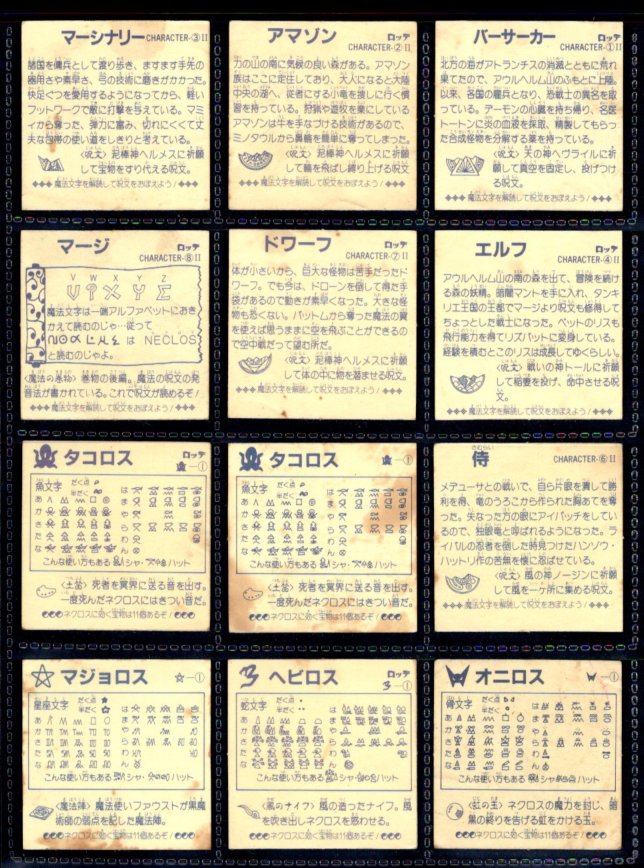 マーシナリー CHARACTER-③II
諸国を傭兵として渡り歩き、ますます手先の
器用さや素早さ、弓の技術に磨きがかかった。
快足ぐつを愛用するようになってから、軽い
フットワークで敵に打撃を与えている。マミ
ィから奪った、弾力に富み、切れにくくて丈
夫な包帯の使い道をしきりと考えている。
〈呪文〉泥棒神ヘルメスに祈願
して宝物をすり代える呪文。
◆◆◆魔法文字を解読して呪文をおぼえよう!◆◆◆
アマゾン ロッテ
CHARACTER-②II
力の山の南に気候の良い森がある。アマゾン
族はここに定住しており、大人になると大陸
中央の湖へ、従者にする小竜を捜しに行く慣
習を持っている。狩猟や遊牧を業にしている
アマゾンは牛を手なづける技術があるので、
ミノタウルから鼻輪を簡単に奪ってしまった。
〈呪文〉泥棒神ヘルメスに祈願
して輪を飛ばし縛り上げる呪文
◆◆◆魔法文字を解読して呪文をおぼえよう!◆◆◆
バーサーカー ロッテ
CHARACTER-①II
北方の海がアトランチスの消滅とともに荒れ
果てたので、アウルヘルム山のふもとに上陸。
以来、各国の雇兵となり、恐戦士の異名を取
っている。デーモンの心臓を持ち帰り、名医
トートンに炎の血液を採取、精製してもらっ
た合成怪物を分解する薬を持っている。
〈呪文〉天の神ヘヴライルに祈
願して真空を固定し、投げつけ
る呪文。
◆◆◆魔法文字を解読して呪文をおぼえよう!◆◆◆
マージ ロッテ
CHARACTER-⑧II
V W X Y Z
魔法文字は一端アルファベットにおき
かえて読むのじゃ…従って
は NECLOS
と読むのじゃよ。
〈魔法の巻物〉巻物の後編。魔法の呪文の発
音法が書かれている。これで呪文が読めるぞ!
◆◆◆魔法文字を解読して呪文をおぼえよう!◆◆◆
ドワーフ ロッテ
CHARACTER-⑦II
体が小さいから、巨大な怪物は苦手だったド
ワーフ。でも今は、ドローンを倒して得た手
袋があるので動きが素早くなった。大きな怪
物も恐くない。バットムから奪った魔法の翼
を使えば思うままに空を飛ぶことができるの
で空中戦だって望む所だ。
〈呪文〉泥棒神ヘルメスに祈願
して体の中に物を潜ませる呪文。
◆◆◆魔法文字を解読して呪文をおぼえよう!◆◆◆
エルフ ロッテ
CHARACTER-④II
アウルヘルム山の南の森を出て、冒険を続け
る森の妖精。暗闇マントを手に入れ、タンキ
リエ王国の王都でマージより呪文も修得して
ちょっとした戦士になった。ペットのリスも
飛行能力を得てリズバットに変身している。
経験を積むとこのリスは成長してゆくらしい。
〈呪文〉戦いの神トールに祈願
して稲妻を投げ、命中させる呪
文。
◆◆◆魔法文字を解読して呪文をおぼえよう!◆◆◆
タコロス ロッテ
-①
魚文字 だく点 半だく
あ は
か ま
さ や
た ら
な わ
ん
こんな使い方もある シャ・ ハット
〈土笛〉死者を冥界に送る音を出す。
一度死んだネクロスにはきつい音だ。
ネクロスに効く宝物は11個あるぞ!
タコロス ロッテ
-①
魚文字 だく点 半だく
あ は
か ま
さ や
た ら
な わ
ん
こんな使い方もある シャ・ ハット
〈土笛〉死者を冥界に送る音を出す。
一度死んだネクロスにはきつい音だ。
ネクロスに効く宝物は11個あるぞ!
さむらい
侍 CHARACTER-⑥II
メデューサとの戦いで、自ら片眼を潰して勝
利を得、竜のうろこから作られた胸あてを奪
った。失なった方の眼にアイパッチをしてい
るので、独眼竜と呼ばれるようになった。ラ
イバルの忍者を倒した時見つけたハンゾウ・
ハットリ作の苦無を懐に忍ばせている。
〈呪文〉風の神ノージンに祈願
して風を一ケ所に集める呪文。
◆◆◆魔法文字を解読して呪文をおぼえよう!◆◆◆
マジョロス
☆-①
星座文字 だく点 半だく
あ は
か ま
さ や
た ら
な わ
ん
こんな使い方もある シャ・ ハット
〈魔法陣〉魔法使いファウストが黒魔
術師の弱点を記した魔法陣。
ネクロスに効く宝物は11個あるぞ!
ヘビロス ロッテ
-①
蛇文字 だく点 半だく
あ は
か ま
さ や
た ら
な わ
ん
こんな使い方もある シャ・ ハット
〈風のナイフ〉風の造ったナイフ。風
を吹き出しネクロスを惑わせる。
ネクロスに効く宝物は11個あるぞ!
オニロス
-①
骨文字 だく点 半だく
あ は
か ま
さ や
た ら
な わ
ん
こんな使い方もある シャ・ ハット
〈虹の玉〉ネクロスの魔力を封じ、暗
黒の終りを告げる虹をかける玉。
ネクロスに効く宝物は11個あるぞ!